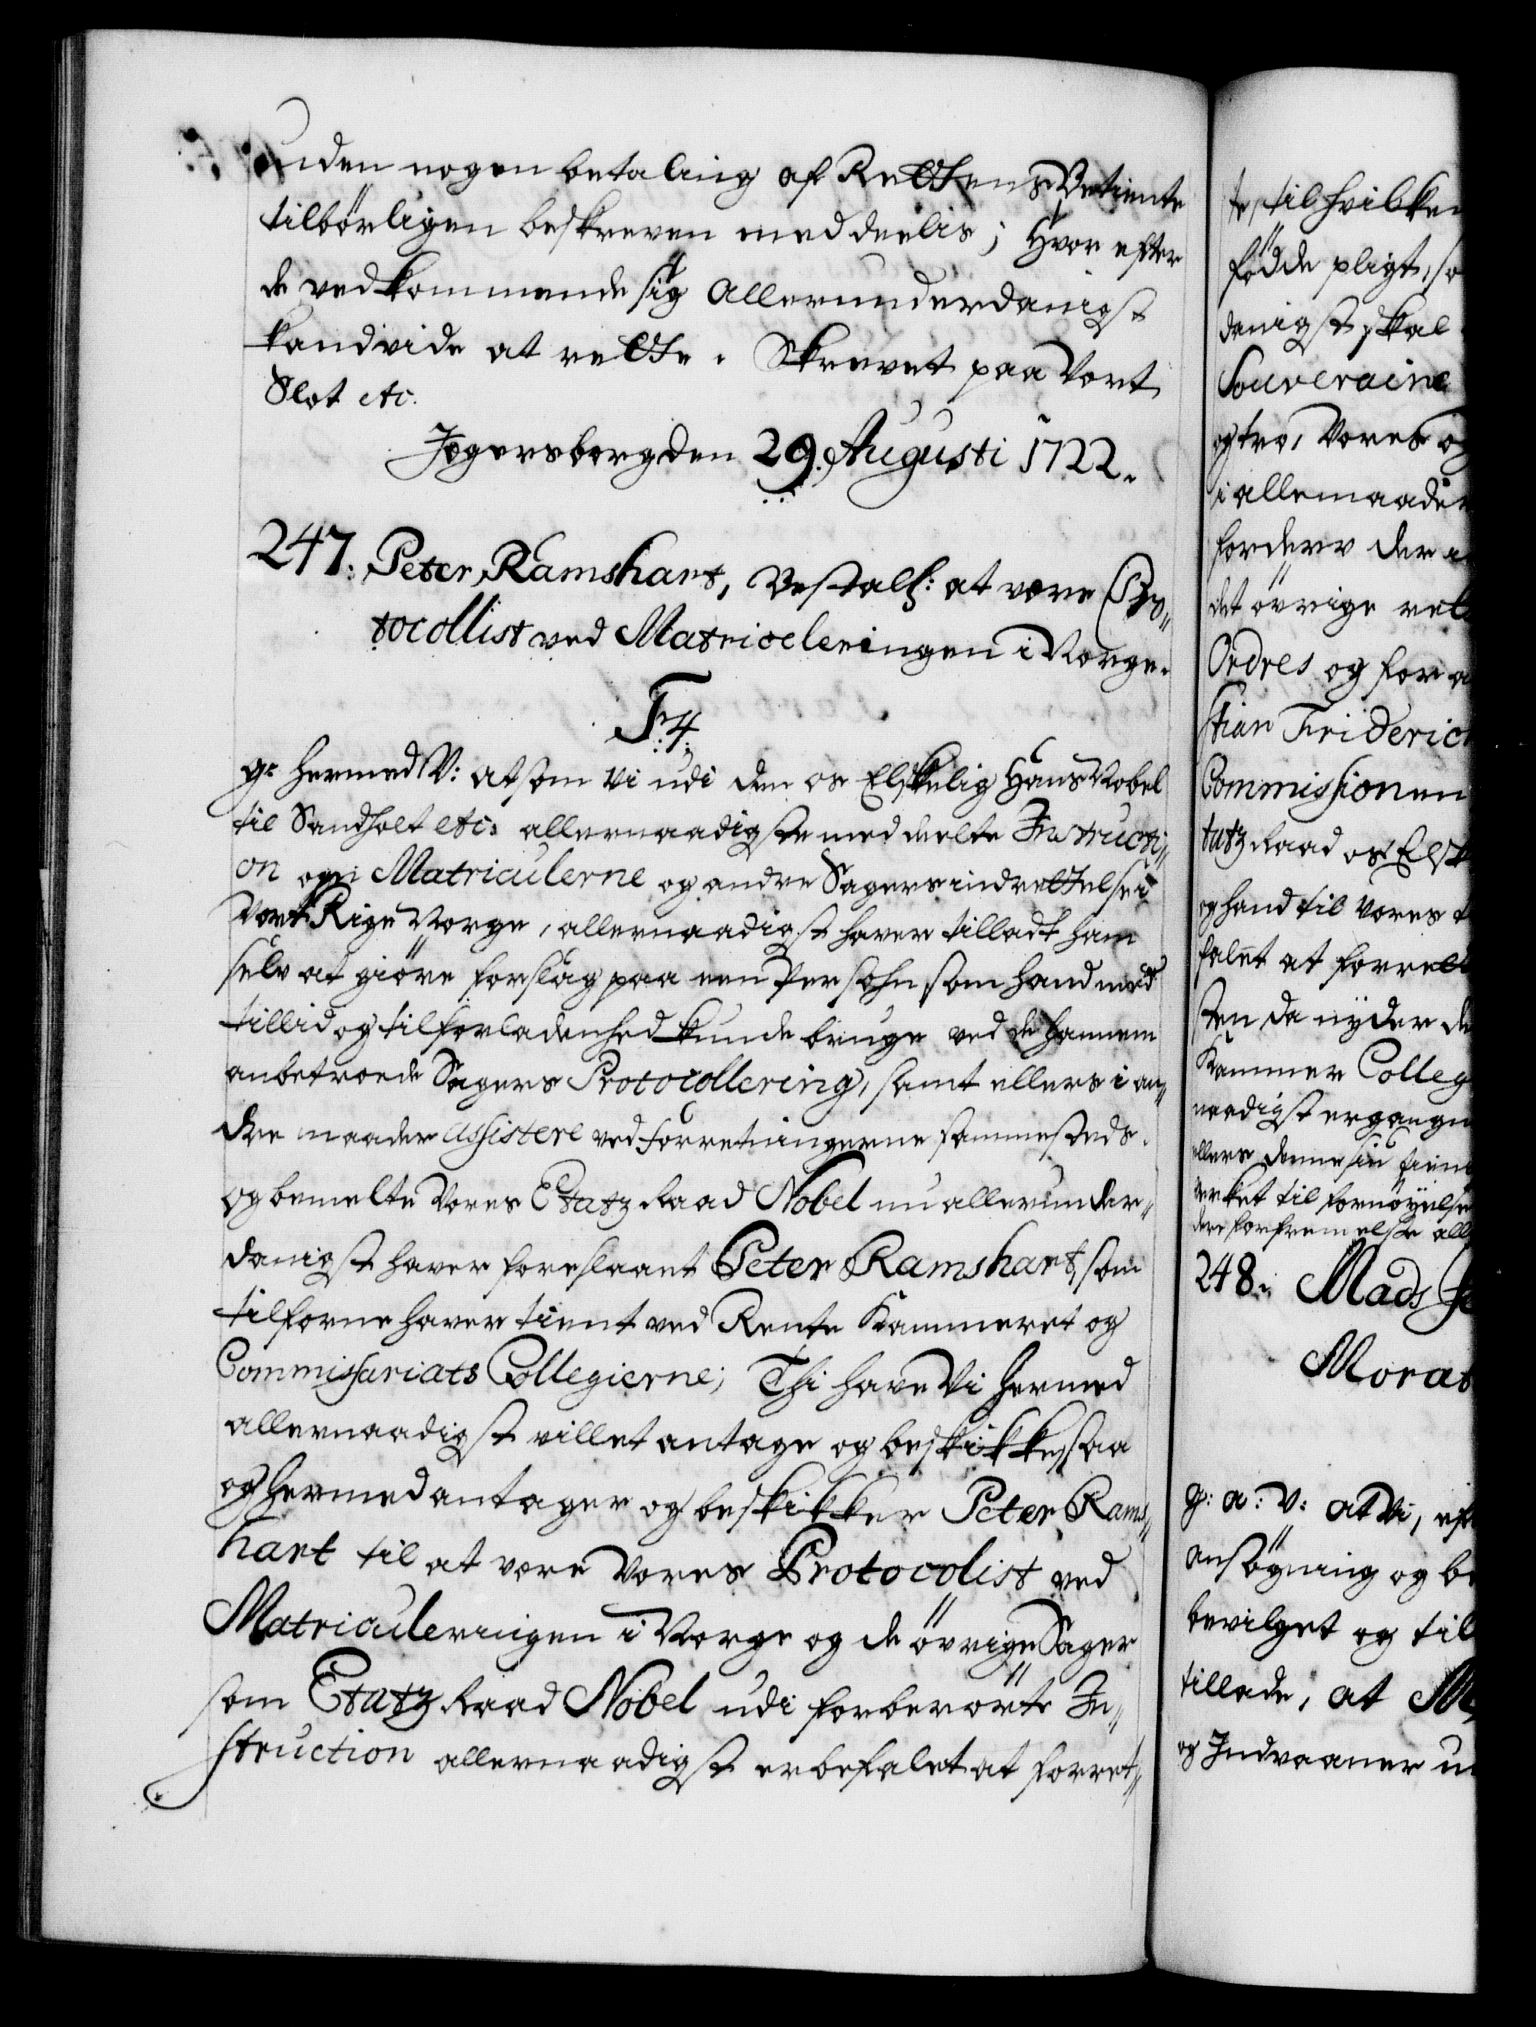 unden nogen betaling af Rettens Betiente
tilbörligen beskreven meddeelis; Hvor efter
de vedkommende sig allerunderdanigst
kand vide at rette. Skrevet paa Vort
Slot etc.
Jegersborg den 29. Augusti 1722.
247. Peter Ramshart, Bestall: at være Pro-
tocollist ved Matriculeringen i Norge.
F. 4.
g: hermed V: at som Vi udi den os Elskelig Hans Nobel
til Sandholt etc. allernaadigste meddeelte Instructi-
on om Matriculerne og andre Sagers indrettelse i
Vort Rige Norge, allernaadigst haver tilladt ham
selv at giöre forslag paa een Persohn som hand med
tillid og tilforladenhed kunde bruge ved de hannem
anbetroede Sagers Protocollering, samt ellers i an-
dre maader assistere ved forretningerne sammesteds.
og bemelte Vores Etatz Raad Nobel nu allerunder-
danigst haver foreslaaet Peter Ramshart, som
tilforne haver tient ved Rente Kammeret og
Commissariats Collegierne; Thi have Vi hermed
allernaadigst villet antage og beskikke, saa
og hermed antager og beskikker Peter Rams-
hart til at være Vores Protocolist ved
Matriculeringen i Norge og de övrige Sager
som Etatz Raad Nobel udi forberörte In-
struction allernaadigst er befalet at forret-
te, til hvilken
födde pligt, so
danigst skal
Souveraine
og tro, Vores og
i allemaader
forderv der
det övrige ret
Ordres og for
stian Frideric
Commissionen
tatz Raad os Elsk
og hand til Vores
falet at forrett
sten da nyder de
Kammer Colleg
naadigst ergangn
ellers denne sin tien
verket til fornöyelse
dere forfremmelse all
248. Mads
Morat
g: a: V: at Vi, eft
ansögning og be
bevilget og til
tillade, at M
og Indvaaner u